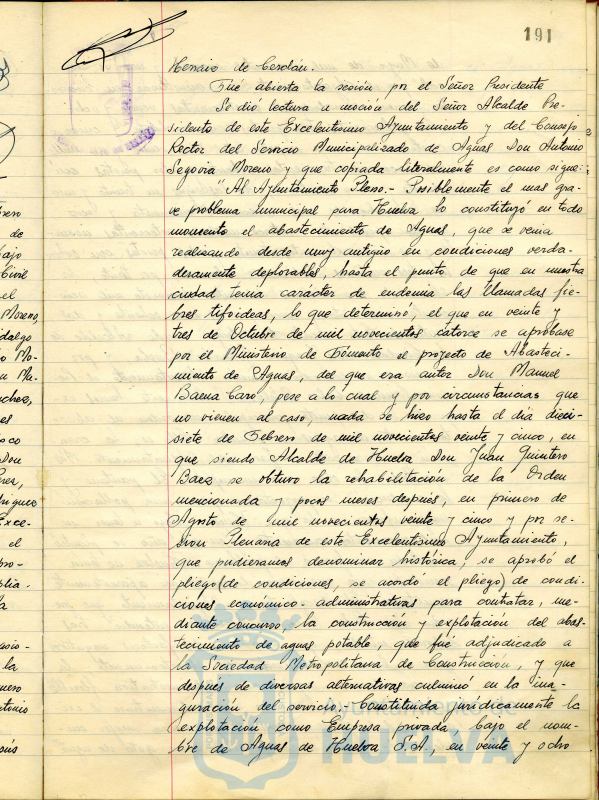 191
Henaio de Cerdán.
Fué abierta la sesión por el Señor Presidente
Se dió lectura a moción del Señor Alcalde Pre-
sidente de este Excelentísimo Ayuntamiento y del Consejo
Rector del Servicio Municipalizado de Aguas Don Antonio
Segovia Moreno y que copiada literalmente es como sigue:
"Al Ayuntamiento Pleno.- Posiblemente el mas gra-
ve problema municipal para Huelva lo constituyó en todo
momento el abastecimiento de Aguas, que se venia
realizando desde muy antigüo en condiciones verda-
deramente deplorables, hasta el punto de que en nuestra
ciudad tenia carácter de endemia las llamadas fie-
bres tifoideas, lo que determinó, el que en veinte y
tres de Octubre de mil novecientos catorce se aprobase
por el Ministerio de Fomento el proyecto de Abasteci-
miento de Aguas, del que era autor Don Manuel
Baena Caro, pese a lo cual y por circunstancias que
no vienen al caso, nada se hizo hasta el dia dieci-
siete de Febrero de mil novecientos veinte y cinco, en
que siendo Alcalde de Huelva Don Juan Quintero
Baez se obtuvo la rehabilitación de la Orden
mencionada y pocos meses después, en primero de
Agosto de mil novecientos veinte y cinco y por se-
sion Plenaria de este Excelentísimo Ayuntamiento,
que pudieramos denominar histórica, se aprobó el
pliego (de condiciones, se acordó el pliego) de condi-
ciones económico-administrativas para contratar, me-
diante concurso, la construcción y explotación del abas-
tecimiento de aguas potable, que fué adjudicado a
la Sociedad Metropolitana de Construcción, y que
después de diversas alternativas culminó en la ina-
guración del servicio.- Constituida juridicamente la
explotación como Empresa privada bajo el nom-
bre de Aguas de Huelva S.A., en veinte y ocho
HUELVA
de
bajo
Civil
el
Moreno,
Don
Exce-
el
la
la